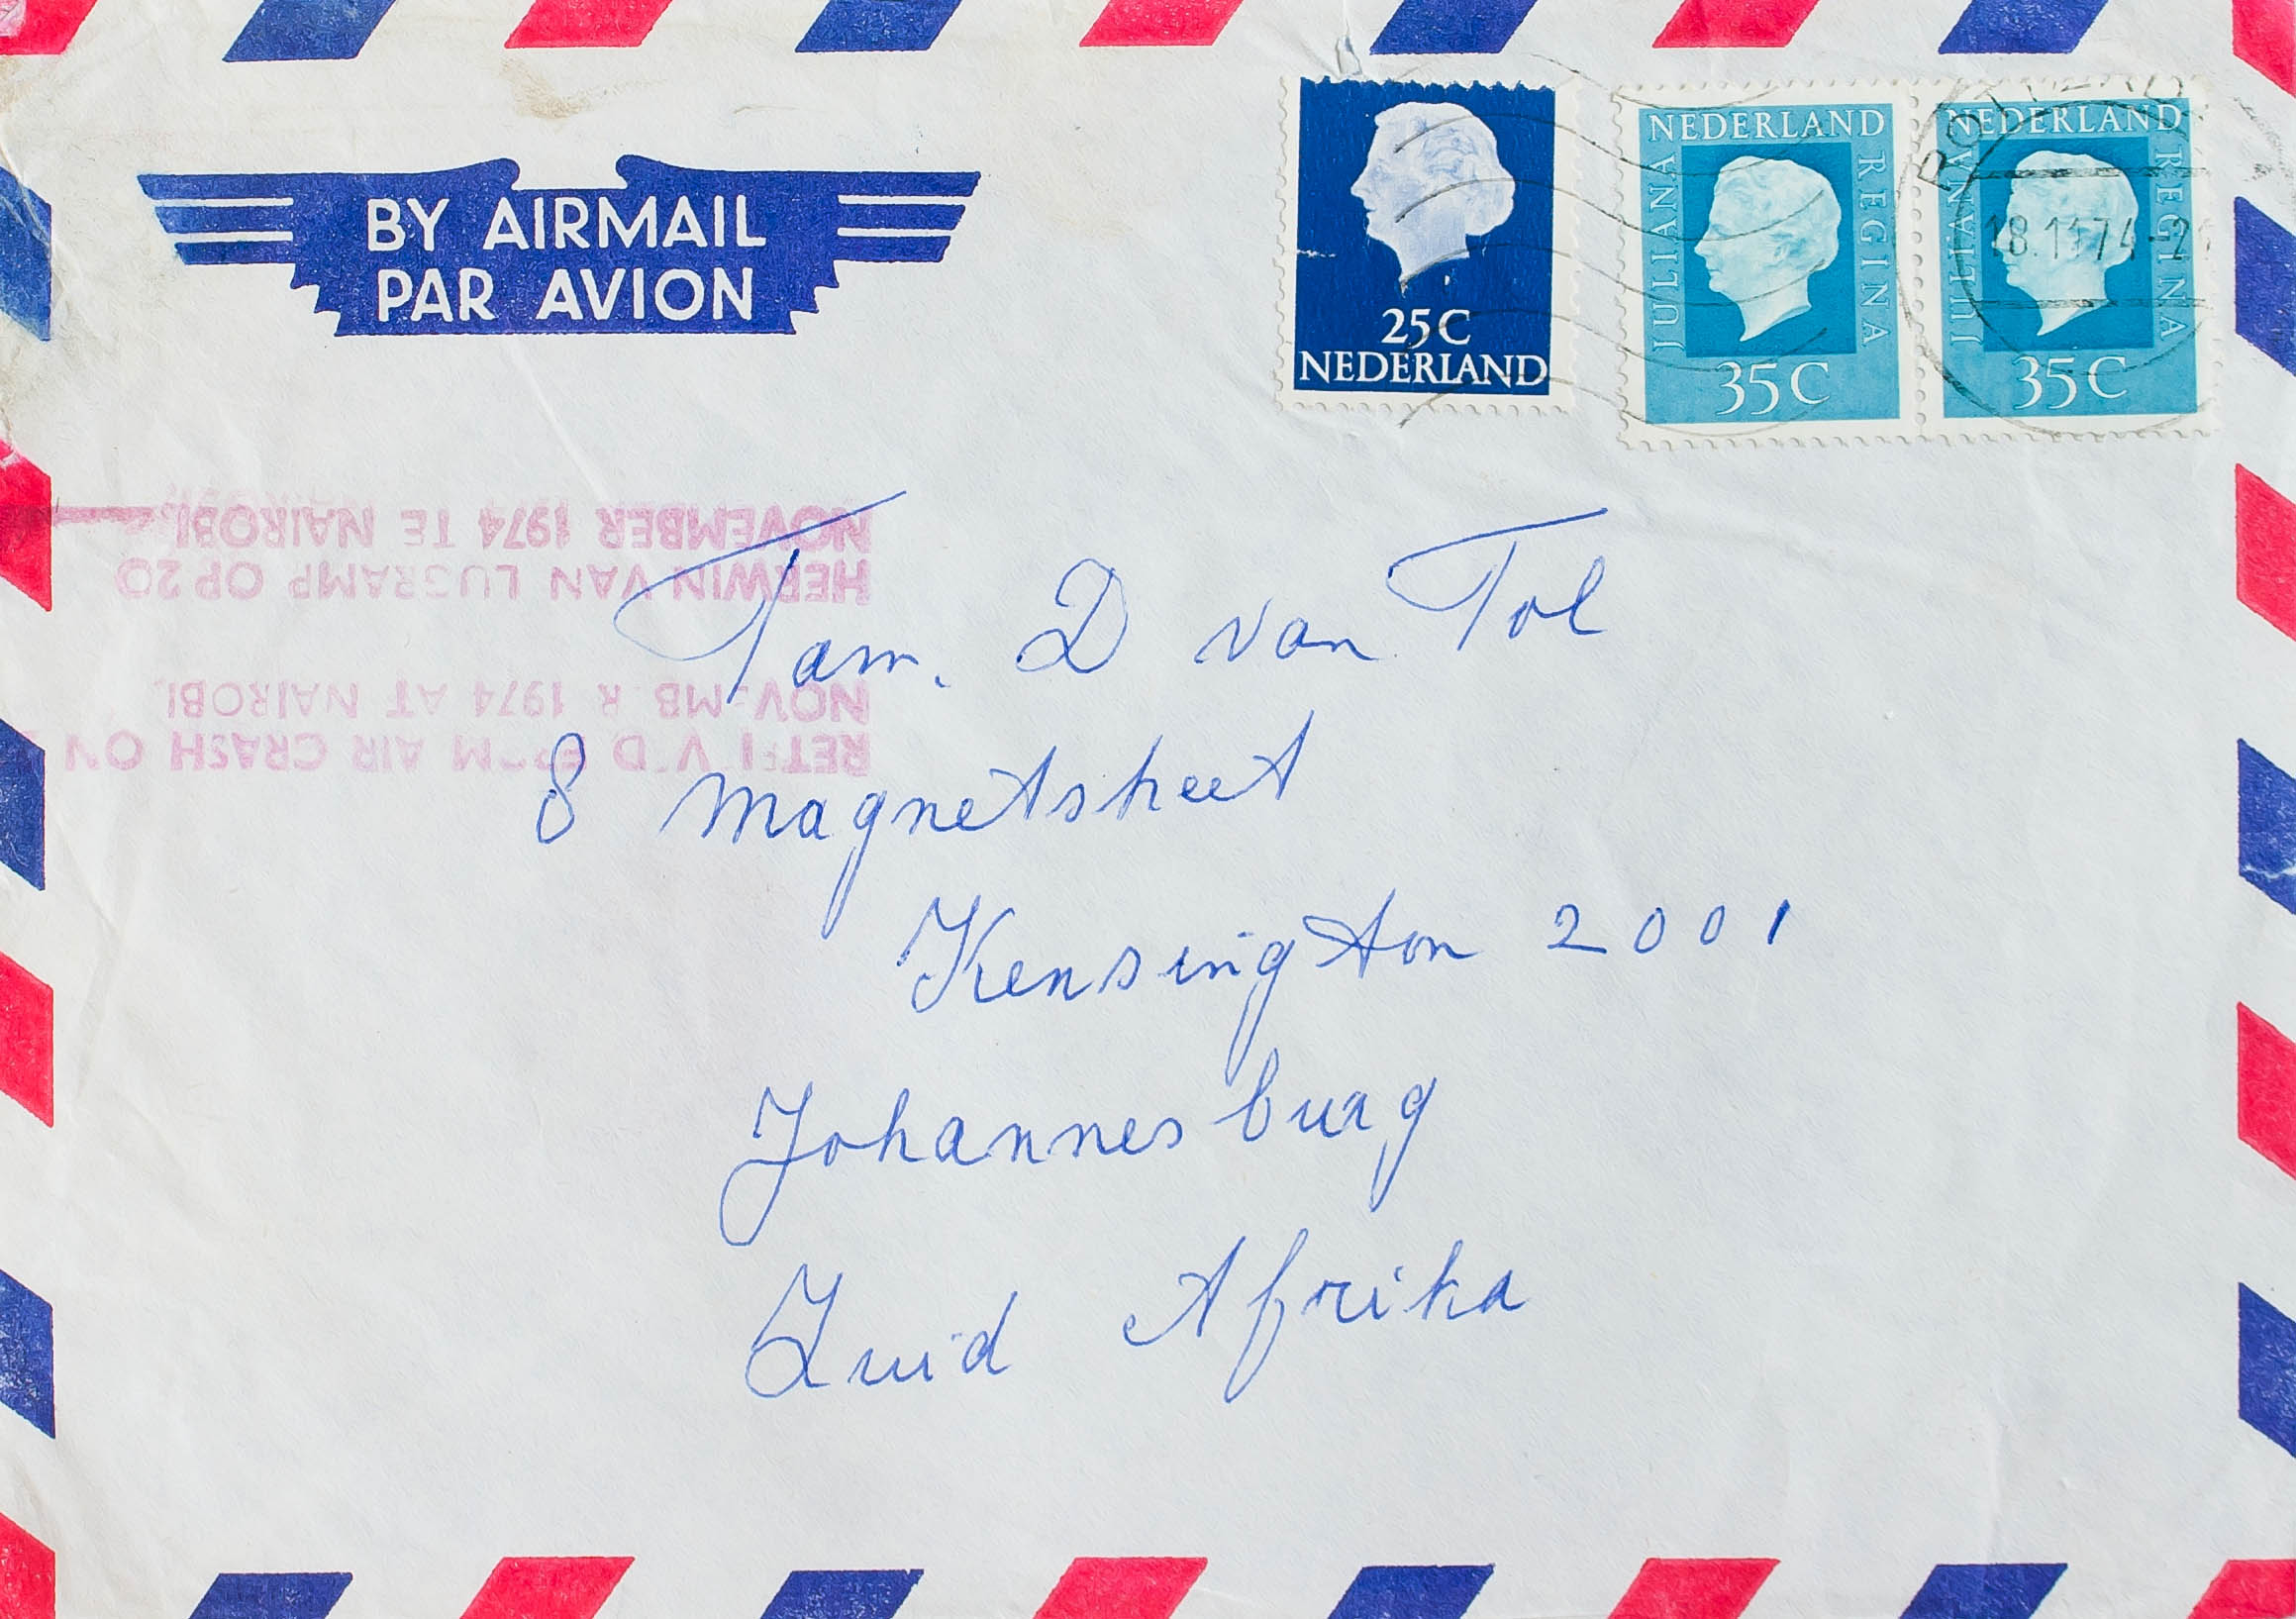 BY AIRMAIL
PAR AVION
25 C
NEDERLAND
NEDERLAND
JULIANA REGINA
35 C
NEDERLAND
JULIANA REGINA
35 C
18.11.74
RETRIEVED FROM AIR CRASH ON
NOVEMBER 1974 AT NAIROBI.
HERWIN VAN LUGRAMP OP 20
NOVEMBER 1974 TE NAIROBI.
Fam. D van Tol
8 Magnetsheet
Kensington 2001
Johannesburg
Zuid Afrika